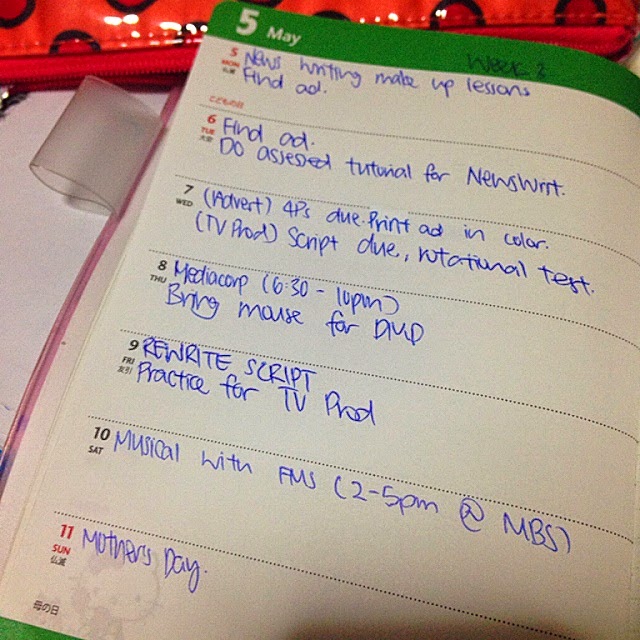 5 May
Week 2
5 MON 仏滅 News writing make up lessons
Find ad.
こどもの日
6 TUE 大安 Find ad.
Do assessed tutorial for NewsWrit.
7 WED (Advert) 4Ps due. Print ad in color.
(TV Prod) Script due, rotational test.
8 THU Mediacorp (6:30 - 10pm)
Bring mouse for DMP
9 FRI 友引 REWRITE SCRIPT
Practice for TV Prod
10 SAT Musical with FMS (2-5pm @ MBS)
11 SUN 仏滅 Mothers Day.
母の日